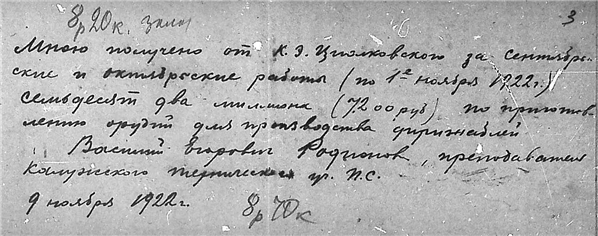 8р20к. 3
Мною получено от К. Э. Циолковского за сентябрь-
ские и октябрьские работы (по 1е ноября 1922 г.)
семьдесят два миллиона (7200 руб) по приготов-
лению орудий для производства дирижаблей
Василий Егорович Родионов, преподаватель
Калужского технического уч. П.С.
9 ноября 1922 г. 8р70к